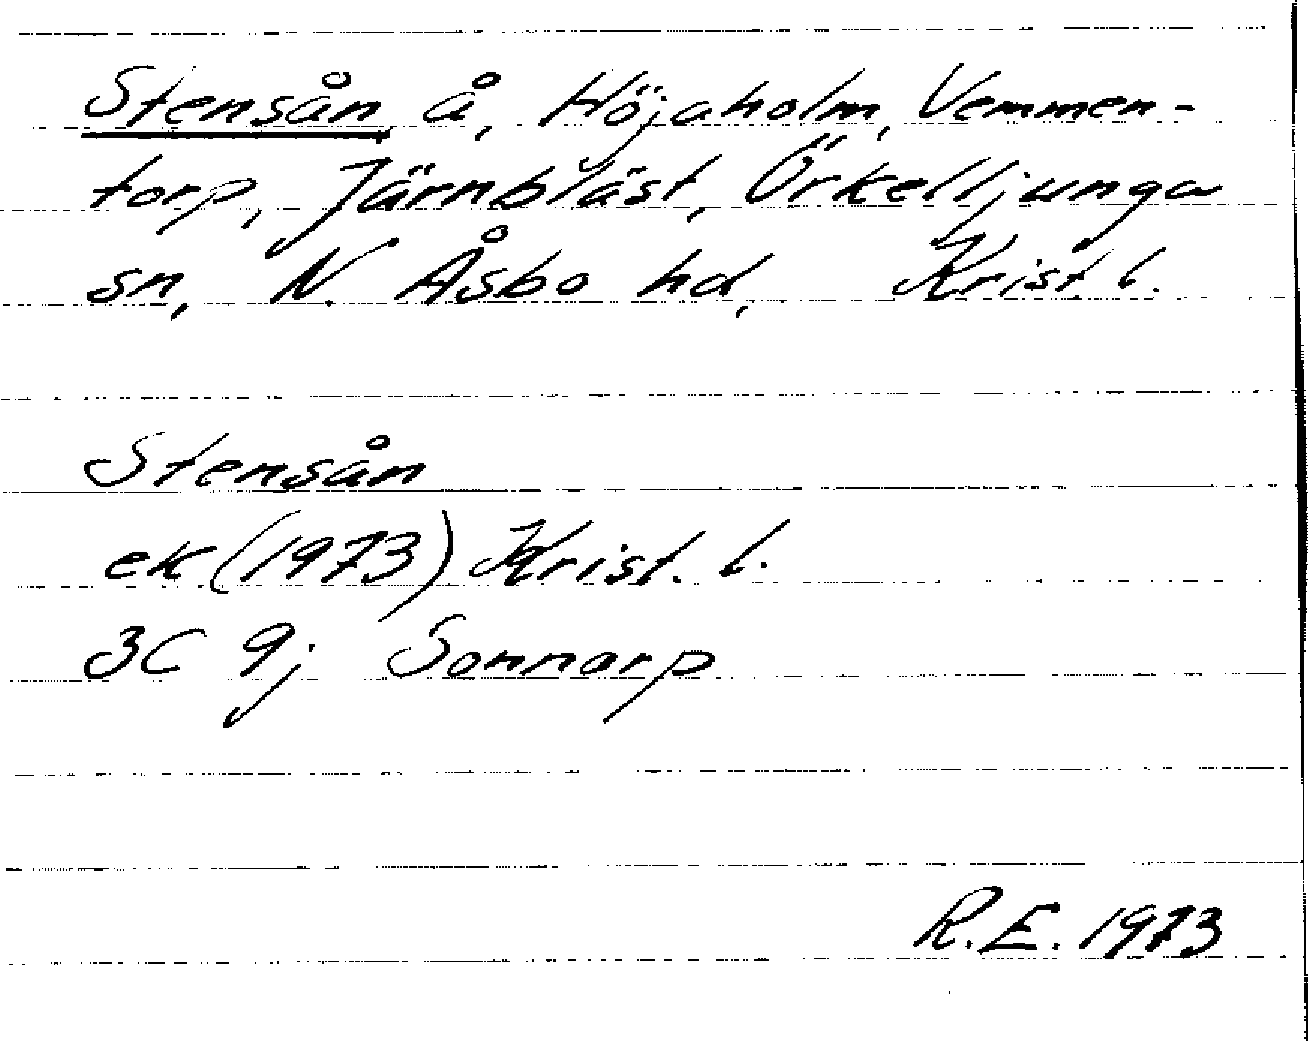 Stensån, å, Höjaholm, Vemmen-
torp, Järnbläst, Örkelljunga
sn, N. Åsbo hd, Krist. l.
Stensån
ek (1973) Krist. l.
3C 9j Sonnarp
R.E. 1973